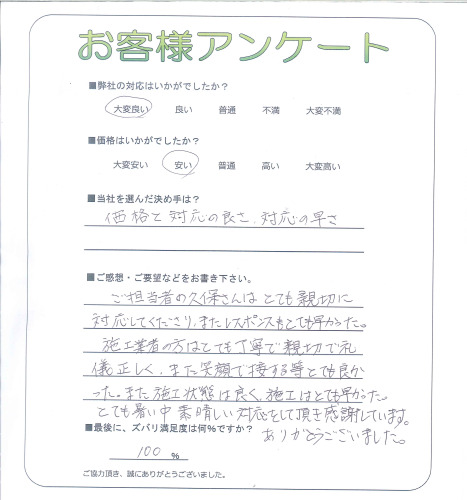 お客様アンケート
■弊社の対応はいかがでしたか？
大変良い 良い 普通 不満 大変不満
■価格はいかがでしたか？
大変安い 安い 普通 高い 大変高い
■当社を選んだ決め手は？
価格と対応の良さ、対応の早さ
■ご感想・ご要望などをお書き下さい。
ご担当者の久保さんはとても親切に
対応してくださり、またレスポンスもとても早かった。
施工業者の方はとても丁寧で親切で礼
儀正しく、また笑顔で接する等とても良か
った。また施工状態は良く、施工はとても早かった
とても暑い中素晴しい対応をして頂き感謝しています。
ありがとうございました。
■最後に、ズバリ満足度は何％ですか？
100 %
ご協力頂き、誠にありがとうございました。